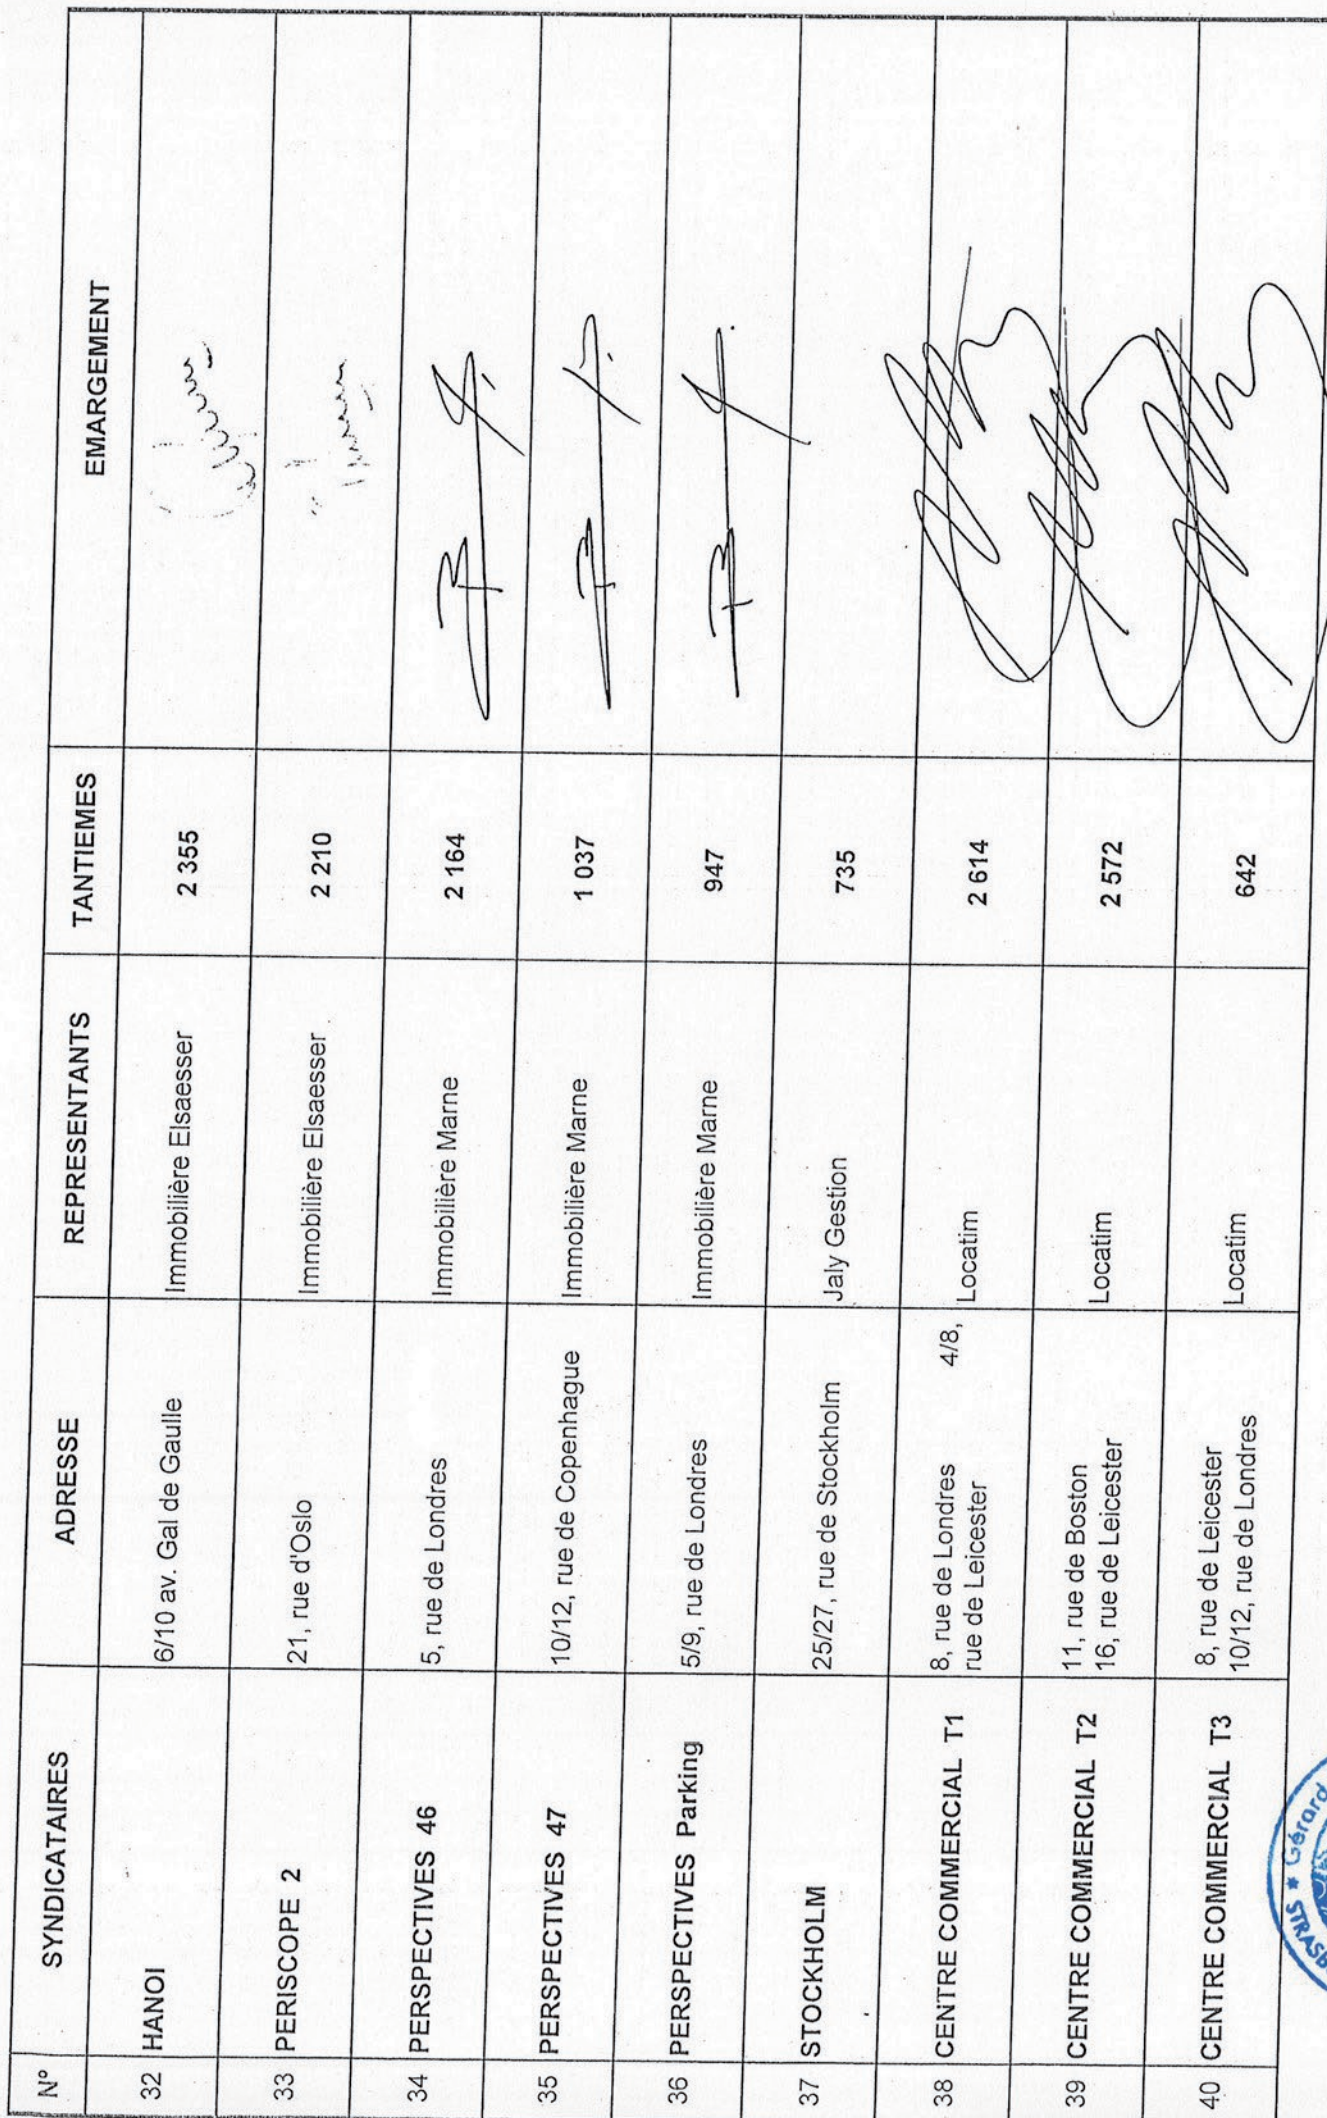 N° SYNDICATAIRES ADRESSE REPRESENTANTS TANTIEMES EMARGEMENT
32 HANOI 6/10 av. Gal de Gaulle Immobilière Elsaesser 2 355
33 PERISCOPE 2 21, rue d'Oslo Immobilière Elsaesser 2 210
34 PERSPECTIVES 46 5, rue de Londres Immobilière Marne 2 164
35 PERSPECTIVES 47 10/12, rue de Copenhague Immobilière Marne 1 037
36 PERSPECTIVES Parking 5/9, rue de Londres Immobilière Marne 947
37 STOCKHOLM 25/27, rue de Stockholm Jaly Gestion 735
38 CENTRE COMMERCIAL T1 8, rue de Londres 4/8, Locatim 2 614
rue de Leicester
39 CENTRE COMMERCIAL T2 11, rue de Boston Locatim 2 572
16, rue de Leicester
40 CENTRE COMMERCIAL T3 8, rue de Leicester Locatim 642
10/12, rue de Londres
Gérard